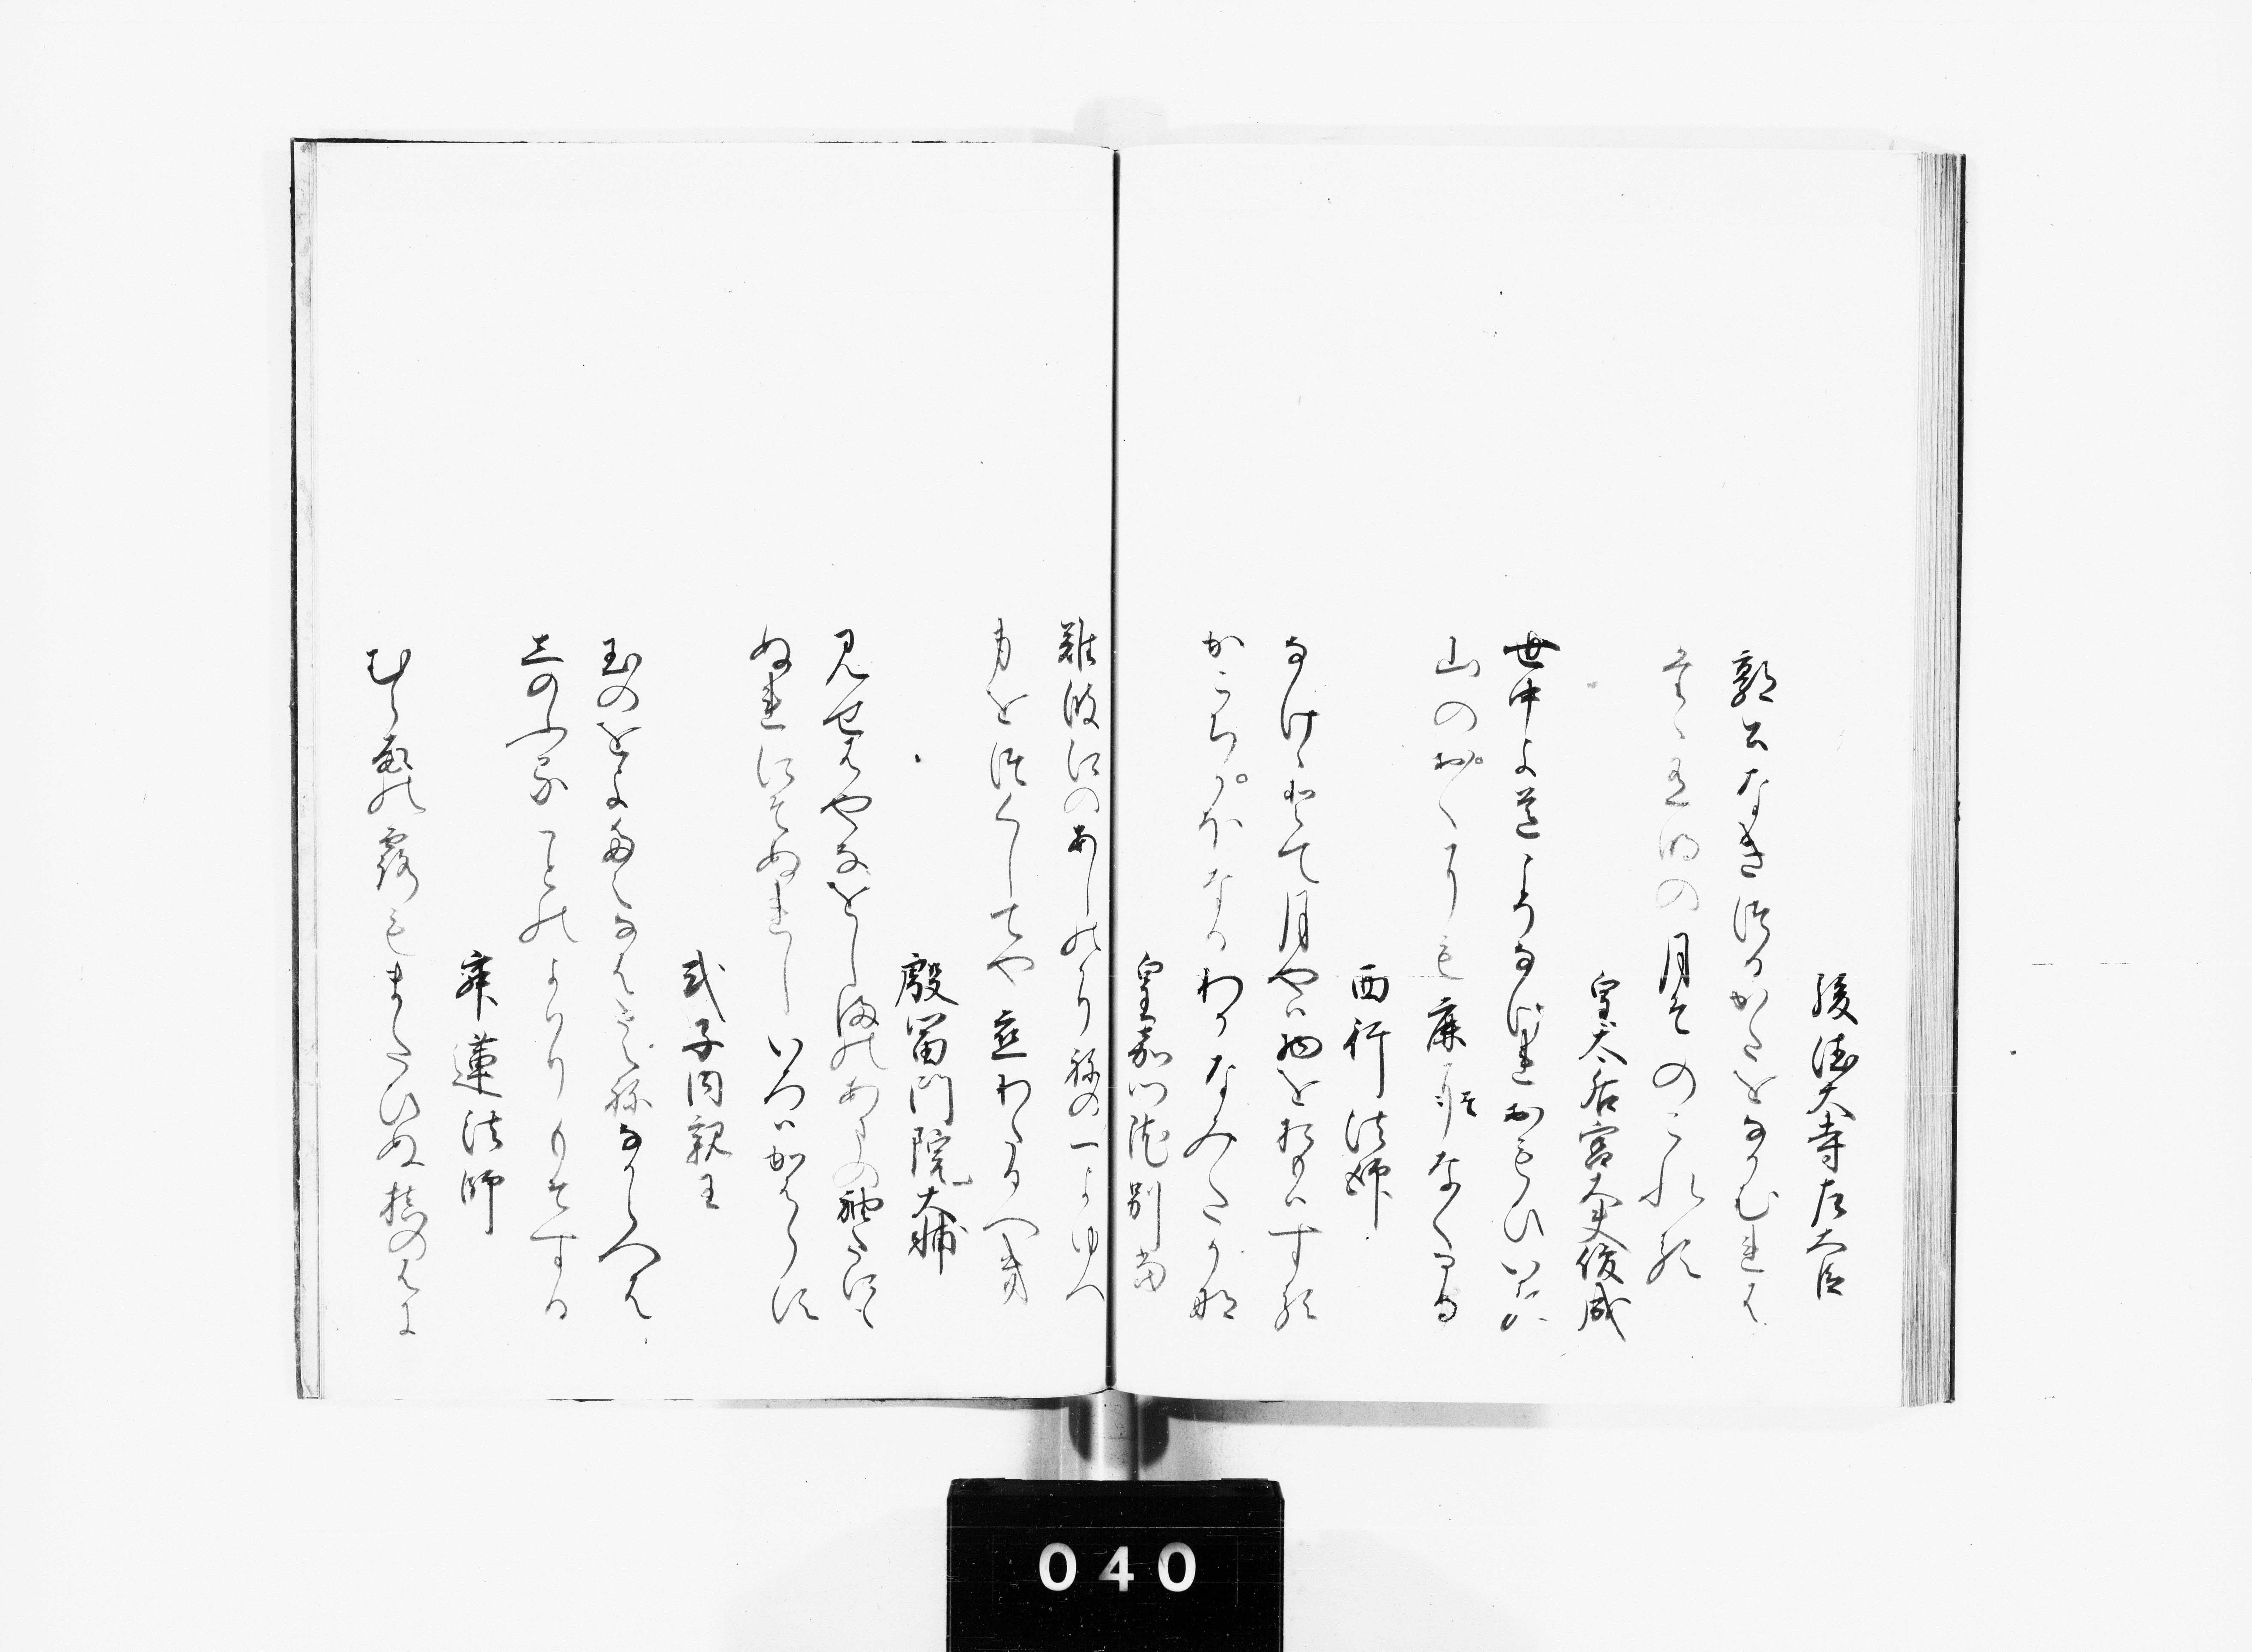 後徳大寺左大臣
郭公なきつるかたをなかむれは
たゝ有明の月そのこれる
皇太后宮大夫俊成
世中よ道こそなけれおもひいる
山のおくにも鹿そなくなる
西行法師
なけゝとて月やは物をおもはする
かこちかほなるわかなみたかな
皇嘉門院別当
難波江のあしのかり ねの一よゆへ
身をつくしてや恋わたるへき
殷富門院大輔
見せはやなをしまのあまの袖たにも
ぬれにそぬれし いろはかはらす
式子内親王
玉のをよたえなはたえねなからへは
しのふることのよはりもそする
寂蓮法師
むら雨の露もまたひぬ槙のはに
040